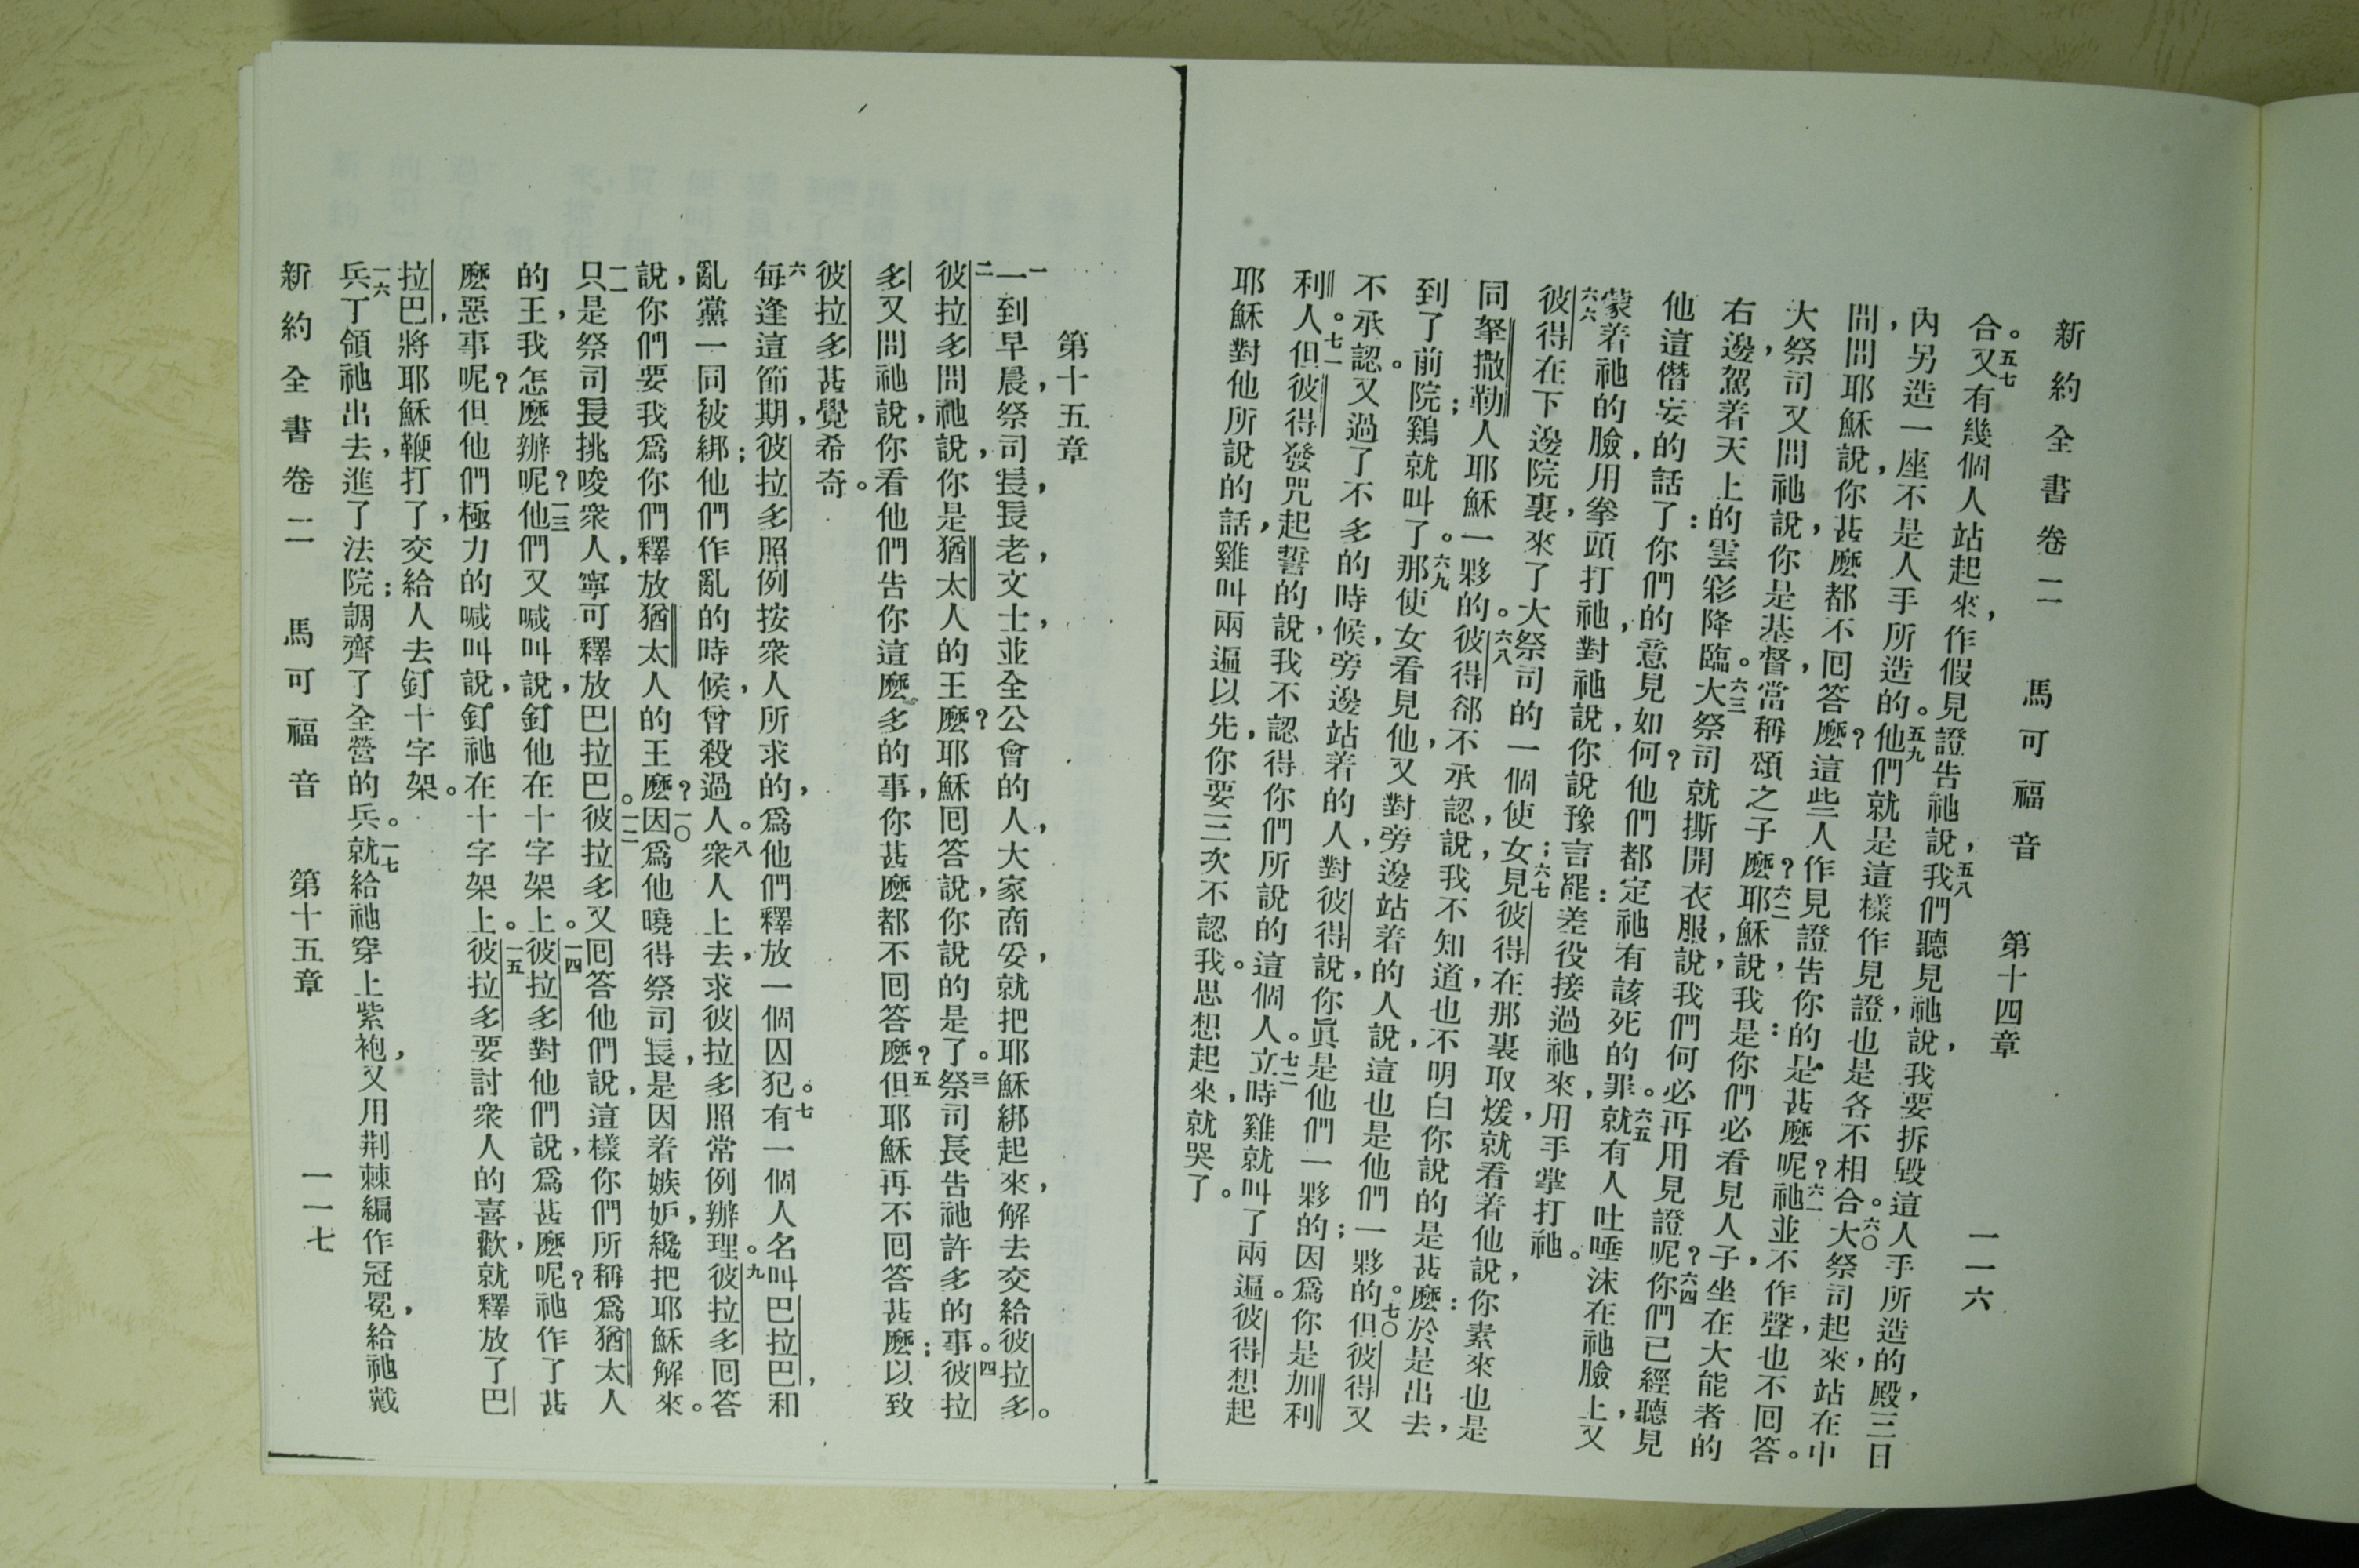 新約全書卷二　馬可福音　第十四章　一一六
合。五七又有幾個人站起來，作假見證告祂說，五八我們聽見祂說，我要拆毀這人手所造的殿，三日
內另造一座不是人手所造的。五九他們就是這樣作見證，也是各不相合。六〇大祭司起來，站在中
間，問耶穌說，你甚麼都不囘答麼？這些人作見證告你的是甚麼呢？六一祂並不作聲，也不囘答。
大祭司又問祂說，你是基督，當稱頌之子麼？六二耶穌說，我是：你們必看見人子，坐在大能者的
右邊，駕着天上的雲彩降臨。六三大祭司就撕開衣服，說，我們何必再用見證呢？六四你們已經聽見
他這僭妄的話了：你們的意見如何？他們都定祂有該死的罪。六五就有人吐唾沫在祂臉上，又
蒙着祂的臉，用拳頭打祂，對祂說，你說豫言罷：差役接過祂來，用手掌打祂。
六六彼得在下邊院裏，來了大祭司的一個使女；六七見彼得在那裏取煖，就看着他，說，你素來也是
同拏撒勒人耶穌一夥的。六八彼得卻不承認，說，我不知道，也不明白你說的是甚麼：於是出去，
到了前院；鷄就叫了。六九那使女看見他，又對旁邊站着的人，說，這也是他們一夥的。七〇但彼得又
不承認。又過了不多的時候，旁邊站着的人，對彼得說，你眞是他們一夥的；因爲你是加利
利人。七一但彼得發咒起誓的說，我不認得你們所說的這個人。七二立時雞就叫了兩遍。彼得想起
耶穌對他所說的話，雞叫兩遍以先，你要三次不認我。思想起來，就哭了。
第十五章
一一到早晨，祭司長，長老，文士，並全公會的人，大家商妥，就把耶穌綁起來，解去交給彼拉多。
二彼拉多問祂，說，你是猶太人的王麼？耶穌囘答說，你說的是了。三祭司長告祂許多的事。四彼拉
多又問祂，說，你看他們告你這麼多的事，你甚麼都不囘答麼？五但耶穌再不囘答甚麼；以致
彼拉多甚覺希奇。
六每逢這節期，彼拉多照例按衆人所求的，爲他們釋放一個囚犯。七有一個人名叫巴拉巴，和
亂黨一同被綁；他們作亂的時候，曾殺過人。八衆人上去，求彼拉多照常例辦理。九彼拉多囘答
說，你們要我爲你們釋放猶太人的王麼？一〇因爲他曉得祭司長，是因着嫉妒，纔把耶穌解來。
一一只是祭司長挑唆衆人，寧可釋放巴拉巴。一二彼拉多又囘答他們說，這樣你們所稱爲猶太人
的王，我怎麼辦呢？一三他們又喊叫說，釘他在十字架上。一四彼拉多對他們說，爲甚麼呢？祂作了甚
麼惡事呢？但他們極力的喊叫說，釘祂在十字架上。一五彼拉多要討衆人的喜歡，就釋放了巴
拉巴，將耶穌鞭打了，交給人去釘十字架。
一六兵丁領祂出去，進了法院；調齊了全營的兵。一七就給祂穿上紫袍，又用荆棘編作冠冕，給祂戴
新約全書卷二　馬可福音　第十五章　一一七